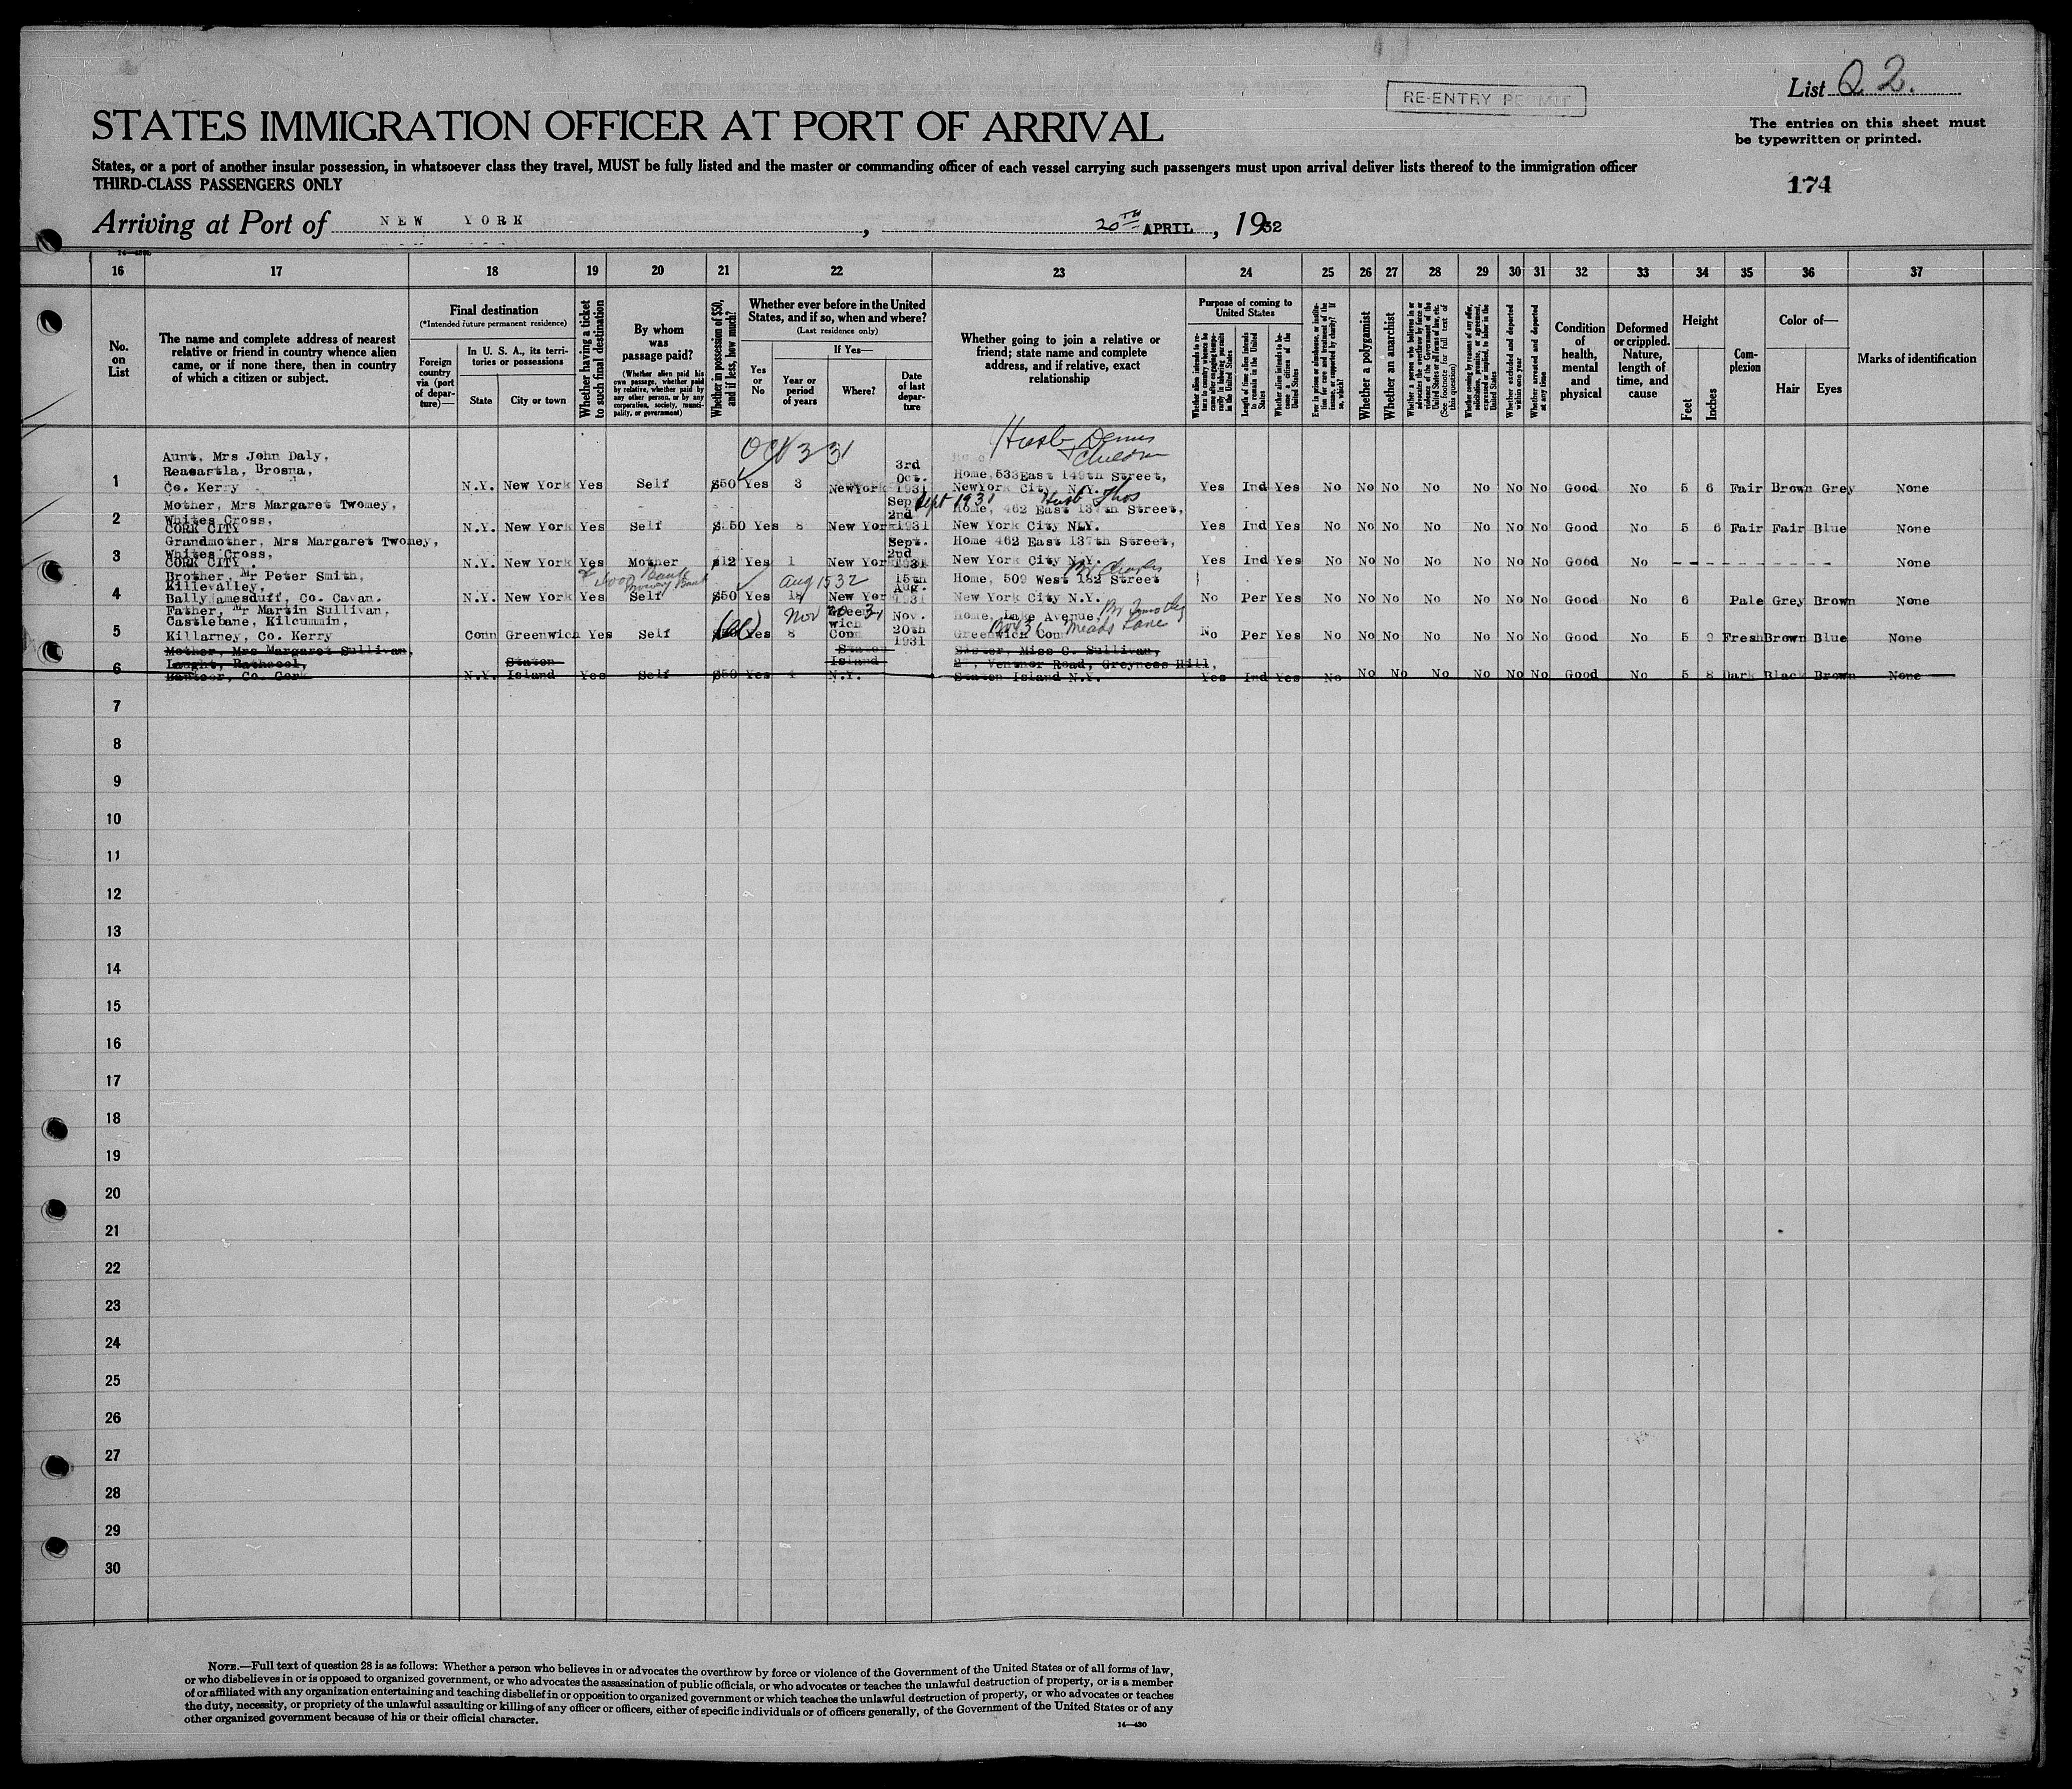 RE-ENTRY PERMIT
List Q 2.
STATES IMMIGRATION OFFICER AT PORT OF ARRIVAL
The entries on this sheet must
be typewritten or printed.
States, or a port of another insular possession, in whatsoever class they travel, MUST be fully listed and the master or commanding officer of each vessel carrying such passengers must upon arrival deliver lists thereof to the immigration officer
THIRD-CLASS PASSENGERS ONLY
174
Arriving at Port of NEW YORK, 20TH APRIL, 1932
16 17 18 19 20 21 22 23 24 25 26 27 28 29 30 31 32 33 34 35 36 37
No. on List
The name and complete address of nearest
relative or friend in country whence alien
came, or if none there, then in country
of which a citizen or subject.
Final destination
(*Intended future permanent residence)
Foreign country via (port of departure)—
In U. S. A., its territories or possessions
State
City or town
Whether having a ticket to such final destination
By whom was passage paid?
(Whether alien paid his own passage, whether paid by relative, whether paid by any other person, or by any corporation, society, municipality, or government)
Whether in possession of $50, and if less, how much?
Whether ever before in the United
States, and if so, when and where?
(Last residence only)
Yes or No
If Yes—
Year or period of years
Where?
Date of last departure
Whether going to join a relative or
friend; state name and complete
address, and if relative, exact
relationship
Purpose of coming to United States
Whether alien intends to return to country whence he came after engaging temporarily in laboring pursuits in the United States
Length of time alien intends to remain in the United States
Whether alien intends to become a citizen of the United States
Ever in prison or almshouse, or institution for care and treatment of the insane, or supported by charity? If so, which?
Whether a polygamist
Whether an anarchist
Whether a person who believes in or advocates the overthrow by force or violence of the Government of the United States or all forms of law, etc. (See footnote for full text of this question)
Whether coming by reason of any offer, solicitation, promise, or agreement, expressed or implied, to labor in the United States
Whether excluded and deported within one year
Whether arrested and deported at any time
Condition of health, mental and physical
Deformed or crippled. Nature, length of time, and cause
Height
Feet
Inches
Complexion
Color of—
Hair
Eyes
Marks of identification
Oct 3 31
Husb. Denis
+ children
Aunt, Mrs John Daly,
Reacasrla, Brosna,
Co. Kerry
1 N.Y. New York Yes Self $50 Yes 3 NewYork 3rd Oct. 1931 Home, 533East 149th Street, NewYork City, N.Y. Yes Ind Yes No No No No No No No Good No 5 6 Fair Brown Grey None
Sept 1931
Husb Thos
Mother, Mrs Margaret Twomey,
Whites Cross,
CORK CITY
2 N.Y. New York Yes Self $50 Yes 8 New York 2nd Sep 1931 Home, 462 East 137th Street, New York City N.Y. Yes Ind Yes No No No No No No No Good No 5 6 Fair Fair Blue None
Grandmother, Mrs Margaret Twomey,
Whites Cross,
CORK CITY.
3 N.Y. New York Yes Mother $12 Yes 1 New York Sept. 2nd 1931 Home 462 East 137th Street, New York City N.Y. Yes Ind Yes No No No No No No No Good No - - - - - - - - - - None
Aug 15 32
Br Charles
Brother, Mr Peter Smith,
Killevalley,
Ballyjamesduff, Co. Cavan.
4 N.Y. New York Yes Self $50 Yes 18 New Yor 15th Aug. 1931 Home, 509 West 182 Street New York City N.Y. No Per Yes No No No No No No No Good No 6 Pale Grey Brown None
Nov 20 31
Br Timothy
Box 36 Meads Lane
Father, Mr Martin Sullivan,
Castlebane, Kilcummin,
Killarney, Co. Kerry
5 Conn Greenwich Yes Self $50 Yes 8 Greenwich Conn Nov. 20th 1931 Home, Lake Avenue, Greenwich Conn No Per Yes No No No No No No No Good No 5 9 Fresh Brown Blue None
Mother, Mrs Margaret Sullivan,
Laught, Rathcool,
Banteer, Co. Cork
6 N.Y. Staten Island Yes Self $50 Yes 4 Staten Island N.Y. Sister, Miss C. Sullivan, Ventnor Road, Greyness Hill, Staten Island N.Y. Yes Ind Yes No No No No No No No Good No 5 8 Dark Black Brown None
7
8
9
10
11
12
13
14
15
16
17
18
19
20
21
22
23
24
25
26
27
28
29
30
NOTE.—Full text of question 28 is as follows: Whether a person who believes in or advocates the overthrow by force or violence of the Government of the United States or of all forms of law,
or who disbelieves in or is opposed to organized government, or who advocates the assassination of public officials, or who advocates or teaches the unlawful destruction of property, or is a member
of or affiliated with any organization entertaining and teaching disbelief in or opposition to organized government or which teaches the unlawful destruction of property, or who advocates or teaches
the duty, necessity, or propriety of the unlawful assaulting or killing of any officer or officers, either of specific individuals or of officers generally, of the Government of the United States or of any
other organized government because of his or their official character.
14—430